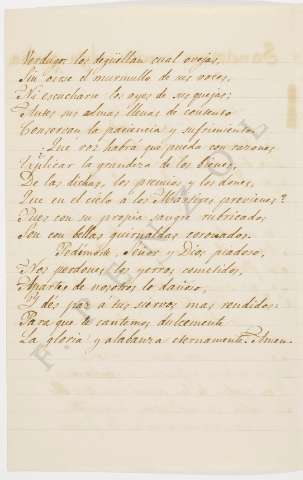 Verdugos los degüellan cual ovejas,
Sin oirse el murmullo de sus voces,
Ni escucharse los ayes de sus quejas;
Antes sus almas llenas de contento
Conservan la paciencia y sufrimiento.
Que voz habrá que pueda con razones
Explicar la grandeza de los bienes,
De las dichas, los premios, y los dones,
Que en el cielo á los Mártires previenes?
Pues con su propia sangre rubricados
Son con bellas guirnaldas coronados.
Pedímoste, Señor y Dios piadoso,
Nos perdones los yerros cometidos,
Apartes de nosotros lo dañoso,
Y des paz a tus siervos mas rendidos.
Para que te cantemos dulcemente
La gloria y alabanza eternamente. Amen.